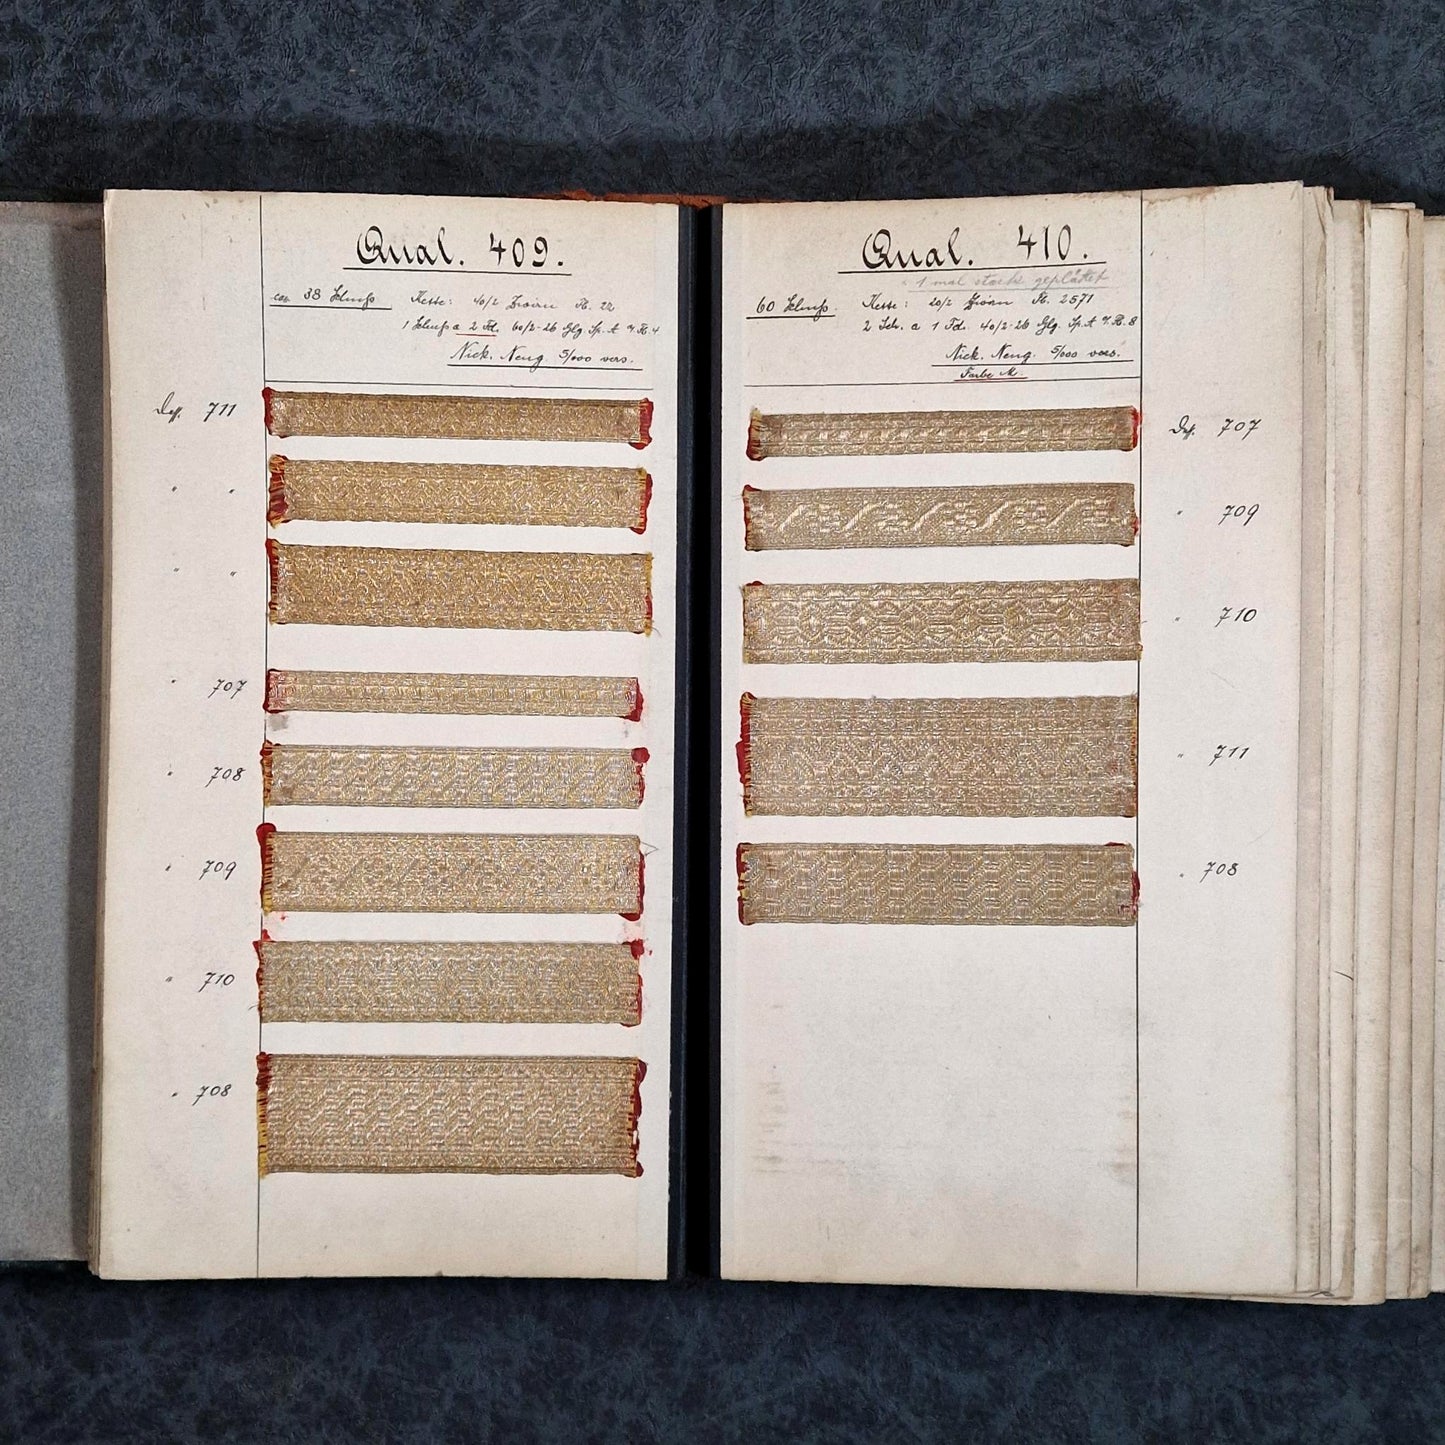 Qual. 409.
ca. 38 Schuss Kette: 40/2 Zwirn N. 22
1 Schuss a 2 Fd. 60/2-26 Glg. Sp. A
Nick. Neug. 5/000 vers.
Des. 711
" "
" "
" 707
" 708
" 709
" 710
" 708
Qual. 410.
1 mal stark geplättet
60 Schuss. Kette: 20/2 Zwirn N. 2571
2 Sch. a 1 Fd. 40/2-26 Glg. Sp. A
Nick. Neug. 5/000 vers.
Farbe M.
Des. 707
" 709
" 710
" 711
" 708